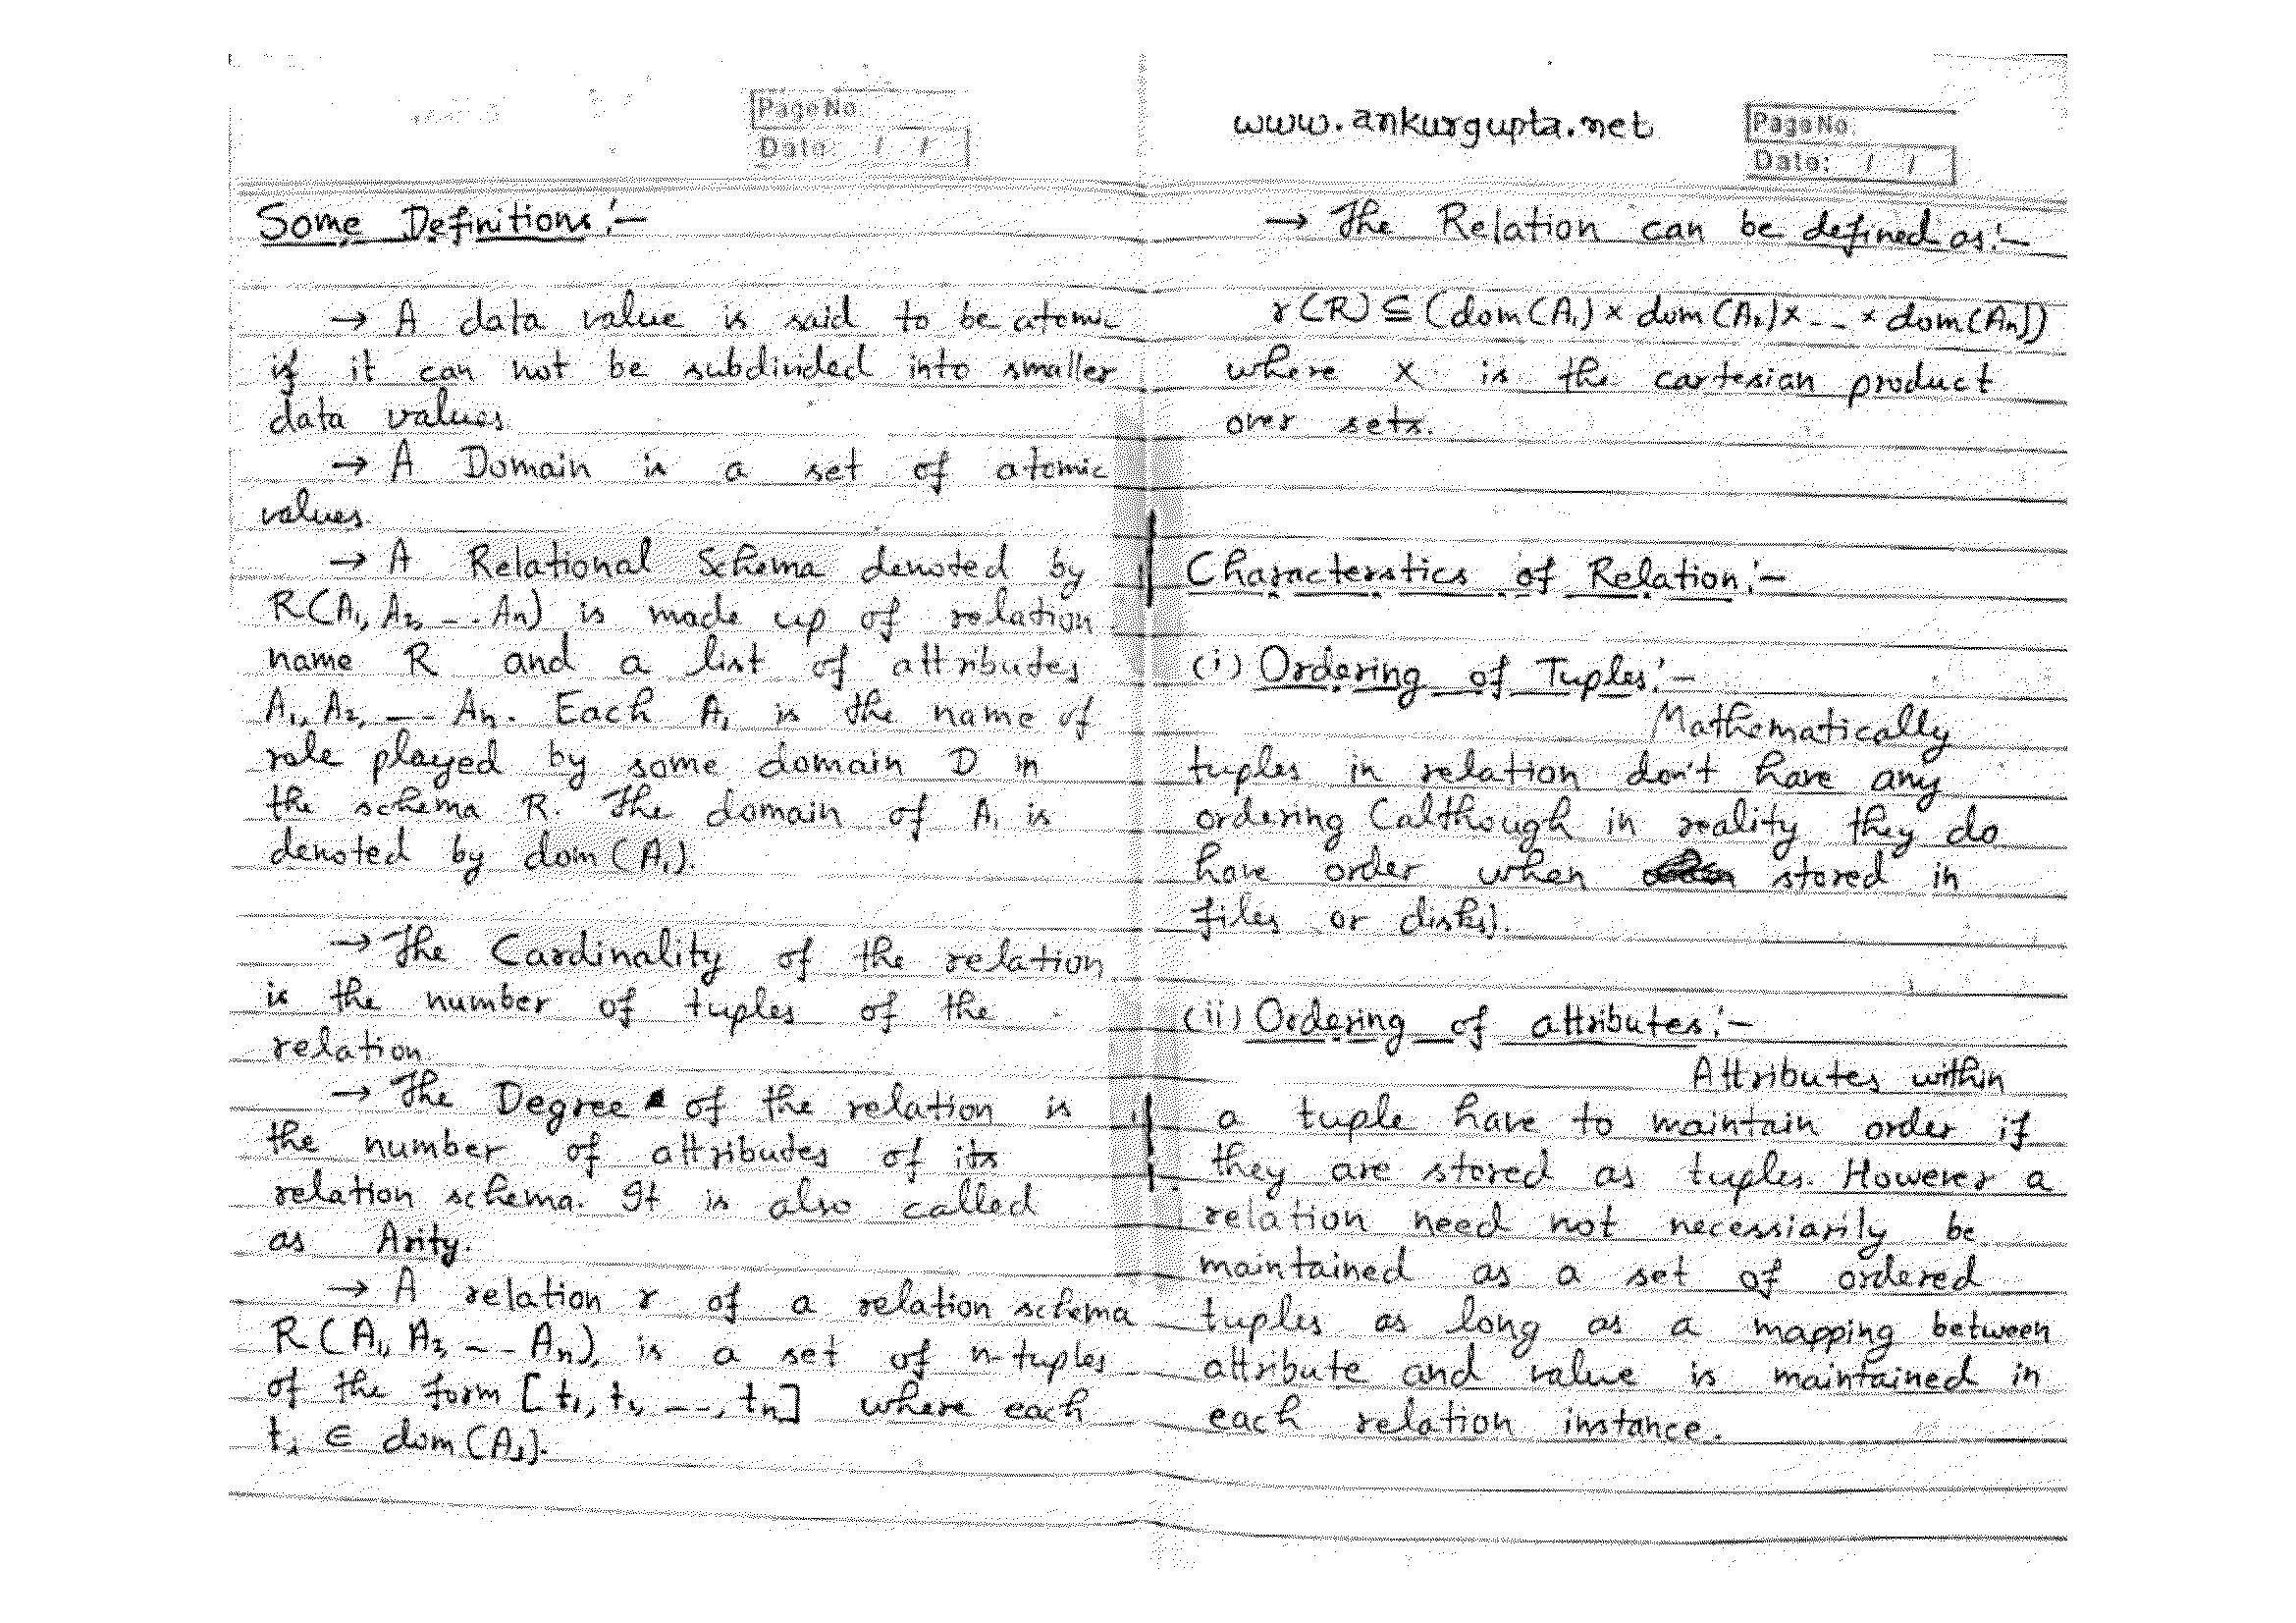 Page No.
Date: / /
Some Definitions:-
→ A data value is said to be atomic
if it can not be subdivided into smaller
data values.
→ A Domain is a set of atomic
values.
→ A Relational Schema denoted by
R(A1, A2, -- An) is made up of relation
name R and a list of attributes
A1, A2, --- An. Each Ai is the name of
role played by some domain D in
the schema R. The domain of Ai is
denoted by dom(Ai).
→ The Cardinality of the relation
is the number of tuples of the
relation.
→ The Degree of the relation is
the number of attributes of its
relation schema. It is also called
as Arity.
→ A relation r of a relation schema
R(A1, A2, --- An), is a set of n-tuples
of the form [t1, t2, ---, tn] where each
ti ∈ dom(Ai).
www.ankurgupta.net
Page No.
Date: / /
→ The Relation can be defined as:-
r(R) ⊆ (dom(A1) × dom(A2) × -- × dom(An))
where X is the cartesian product
over sets.
Characterstics of Relation:-
(i) Ordering of Tuples:-
Mathematically
tuples in relation don't have any
ordering (although in reality they do
have order when stored in
files or disks).
(ii) Ordering of attributes:-
Attributes within
a tuple have to maintain order if
they are stored as tuples. However a
relation need not necessiarily be
maintained as a set of ordered
tuples as long as a mapping between
attribute and value is maintained in
each relation instance.